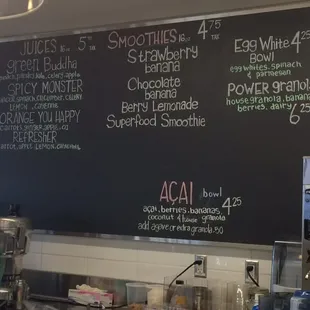 JUICES 16oz 5 TAX
Green Buddha
SPICY MONSTER
ORANGE YOU HAPPY
REFRESHER
SMOOTHIES 16oz. 4.75 TAX
Strawberry
banana
Chocolate
banana
Berry Lemonade
Superfood Smoothie
Egg White 4.25
BOWL
egg whites, spinach
& parmesan
POWER granola
house granola, banana
berries, dairy 6.25
AÇAI bowl
açai, berries, bananas, 4.25
coconut & house granola
add agave or extra granola .50